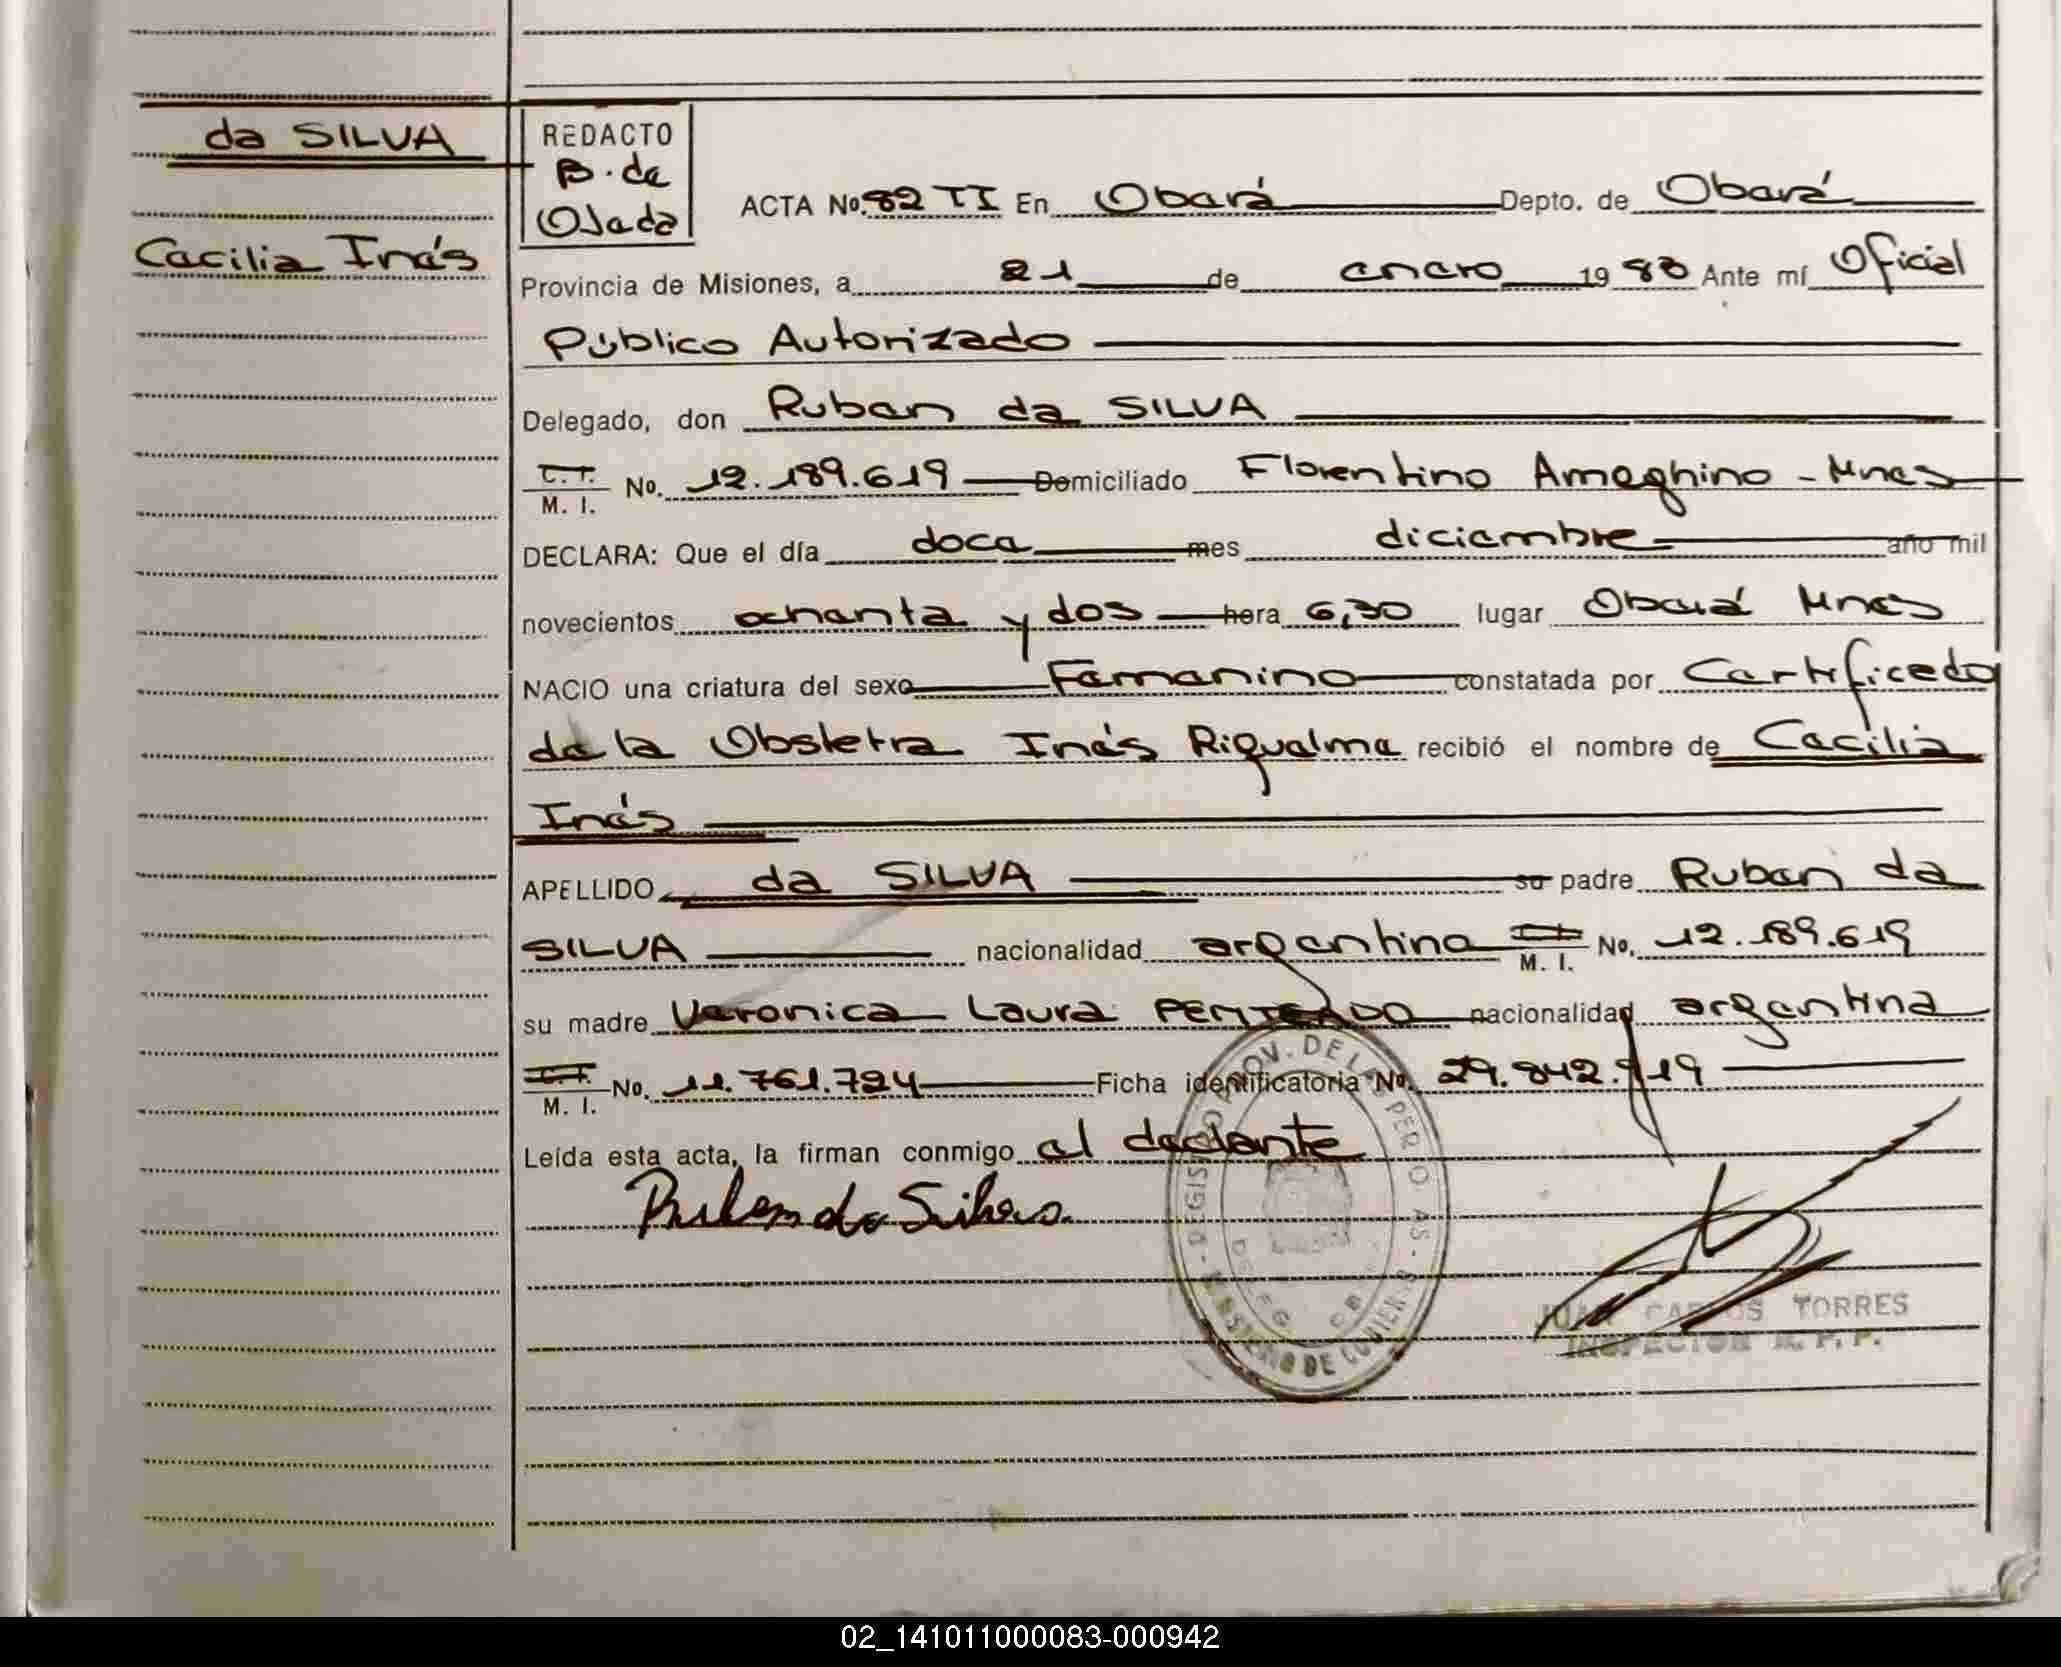 da SILVA
REDACTO
B. de
Ojeda
ACTA No. 82 TI En Oberá Depto. de Oberá
Cecilia Inés
Provincia de Misiones, a 21 de enero 1983 Ante mí Oficial
Público Autorizado
Delegado, don Ruben da SILVA
C.I. M. I. No. 12.189.619 Domiciliado Florentino Ameghino - Mnes
DECLARA: Que el día doce mes diciembre año mil
novecientos ochenta y dos hora 6,30 lugar Oberá Mnes
NACIO una criatura del sexo Femenino constatada por Certificado
de la Obstetra Inés Riquelme recibió el nombre de Cecilia
Inés
APELLIDO da SILVA su padre Ruben da
SILVA nacionalidad argentina M. I. No. 12.189.619
su madre Veronica Laura nacionalidad argentina
C.I. M. I. No. 11.761.724 Ficha identificatoria No. 29.842.919
Leída esta acta, la firman conmigo el declante
Ruben da Silva
REGISTRO PROV. DE LAS PERSONAS - MINISTERIO DE GOBIERNO
DELEG.
JUAN CARLOS TORRES
INSPECTOR R. P. P.
02_141011000083-000942